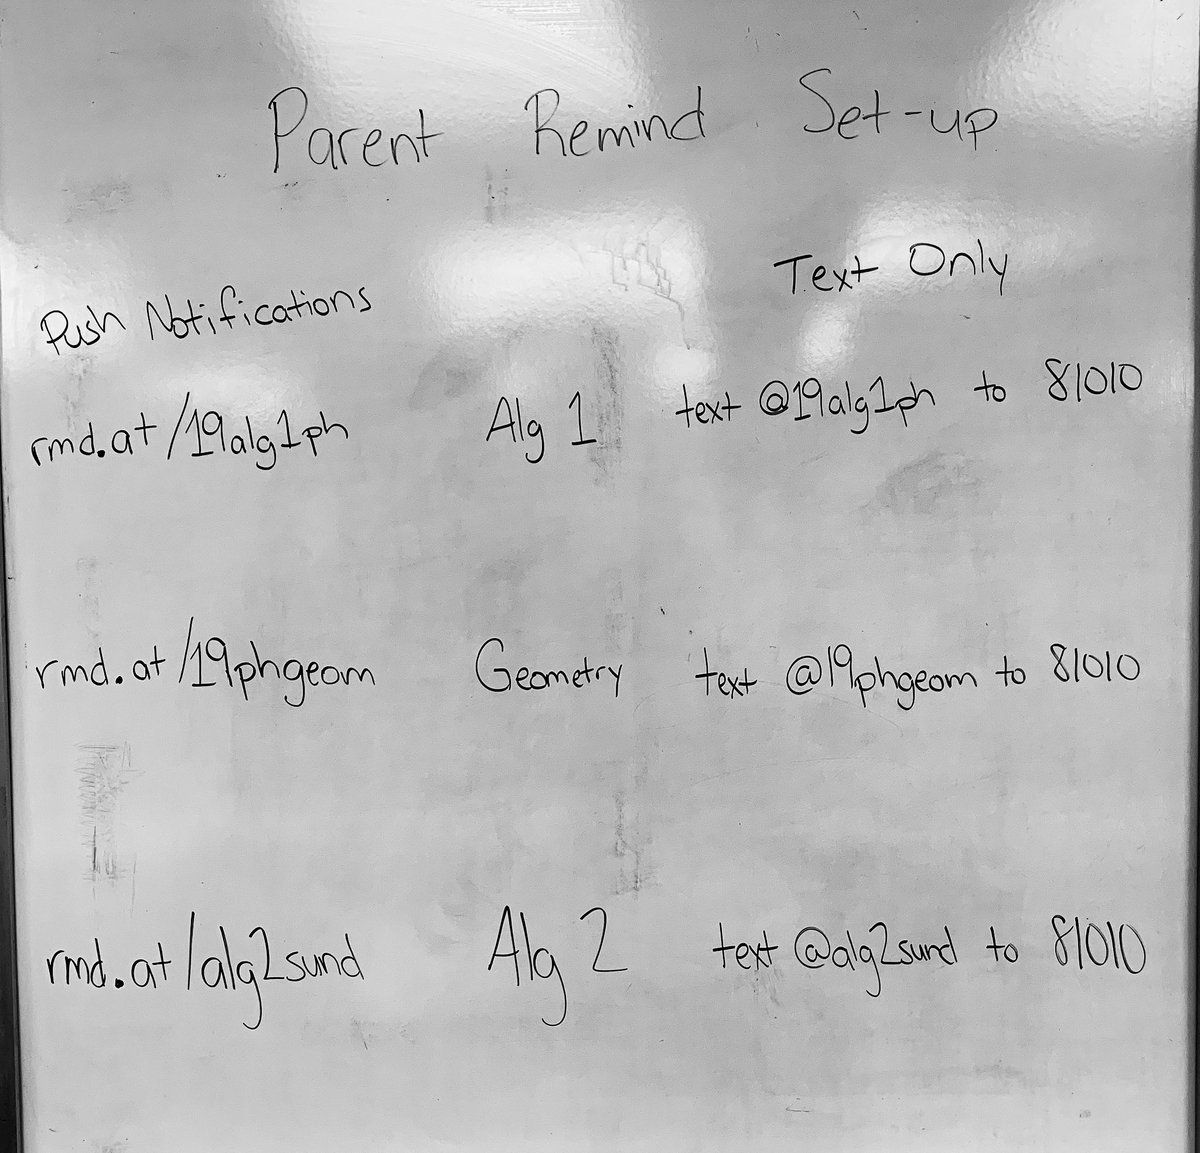 Parent Remind Set-up
Push Notifications Text Only
rmd.at/19alg1ph Alg 1 text @19alg1ph to 81010
rmd.at/19phgeom Geometry text @19phgeom to 81010
rmd.at/alg2sund Alg 2 text @alg2sund to 81010